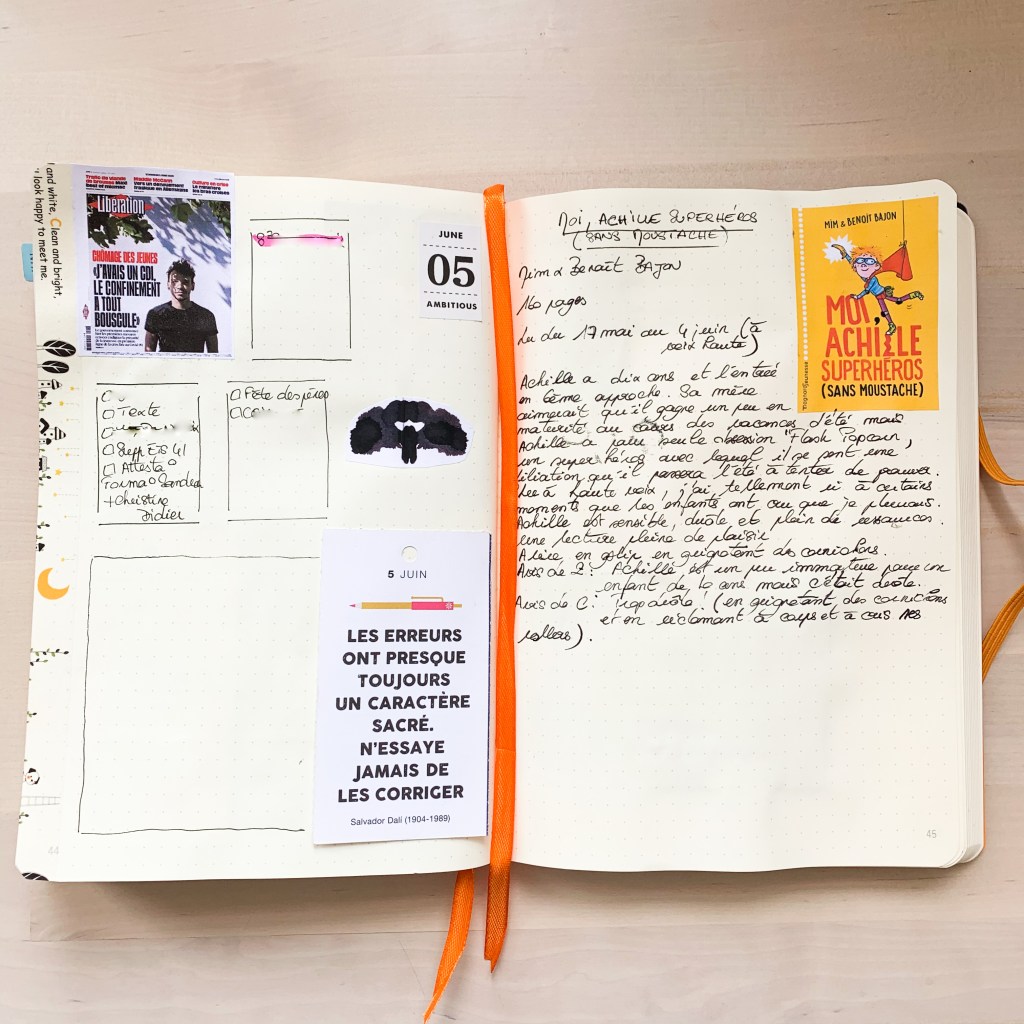 and white, Clean and bright,
look happy to meet me.
Libération
CHÔMAGE DES JEUNES
«J'AVAIS UN CDI,
LE CONFINEMENT
A TOUT
BOUSCULÉ»
8h30
JUNE
05
AMBITIOUS
Texte
Attestᵒ
+ Christine
Didier
Fête des pères
5 JUIN
LES ERREURS
ONT PRESQUE
TOUJOURS
UN CARACTÈRE
SACRÉ.
N'ESSAYE
JAMAIS DE
LES CORRIGER
Salvador Dalí (1904-1989)
44
MOI, ACHILLE SUPERHÉROS
(SANS MOUSTACHE)
Mim & Benoît BAJON
160 pages
Lu du 17 mai au 4 juin (à
voix haute)
Achille a dix ans et l'entrée
en 6ème approche. Sa mère
aimerait qu'il gagne un peu en
maturité au cours des vacances d'été mais
Achille a une seule obsession "Flash Popcorn,
un super héros avec lequel il se sent une
filiation qu'il passera l'été à tenter de prouver.
Lu à haute voix, j'ai tellement ri à certains
moments que les enfants ont cru que je pleurais.
Achille est sensible, drôle et plein de ressources.
Une lecture pleine de plaisir
A lire en grignotant des cornichons.
Avis de Z : Achille est un peu immature pour un
enfant de 10 ans mais c'était drôle.
Avis de C : Trop drôle ! (en grignotant des cornichons
et en réclamant à corps et à cris ses
rollers).
MIM & BENOÎT BAJON
MOI,
ACHILLE
SUPERHÉROS
(SANS MOUSTACHE)
45